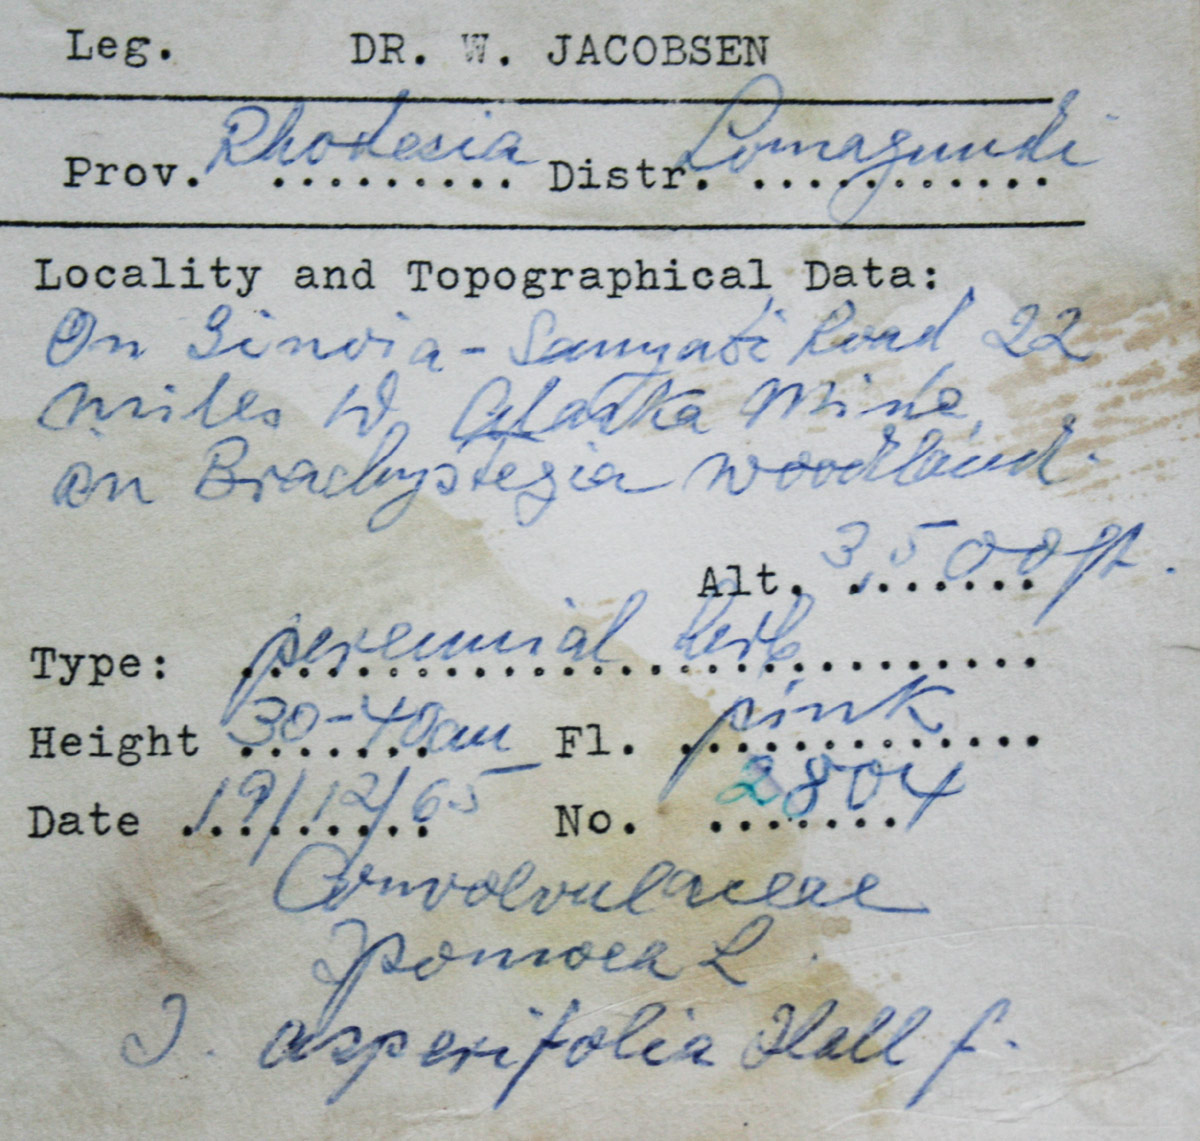 Leg. DR. W. JACOBSEN
Prov. Rhodesia Distr. Lomagundi
Locality and Topographical Data:
On Sinoia - Sanyati Road 22
miles W Alaska Mine
in Brachystegia woodland.
Alt. 3,500 ft.
Type: perennial herb
Height 30-40cm Fl. pink
Date 19/12/65 No. 2804
Convolvulaceae
Ipomoea L.
I. asperifolia Hall f.